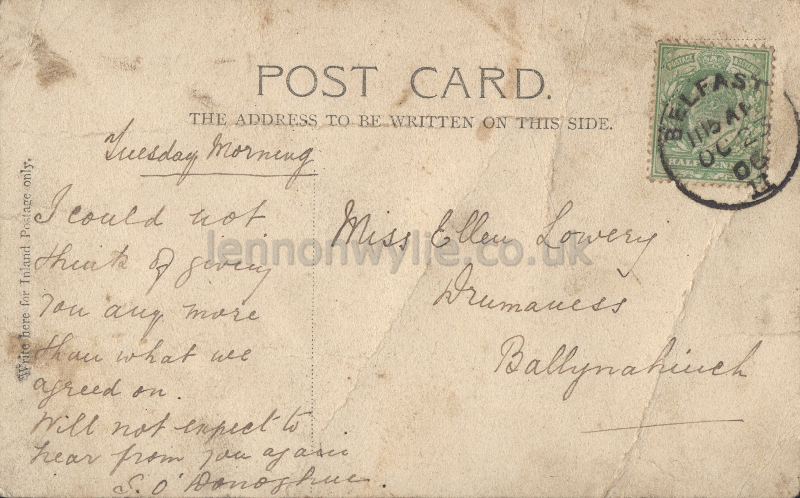 POST CARD.
THE ADDRESS TO BE WRITTEN ON THIS SIDE.
Write here for Inland Postage only.
Tuesday Morning
I could not
think of giving
you any more
than what we
agreed on.
Will not expect to
hear from you again
S. O'Donoghue.
Miss Ellen Lowery
Drumaness
Ballynahinch
POSTAGE
HALFPENNY
BELFAST
11 15 AM
OC 23
06
11
lennonwylie.co.uk